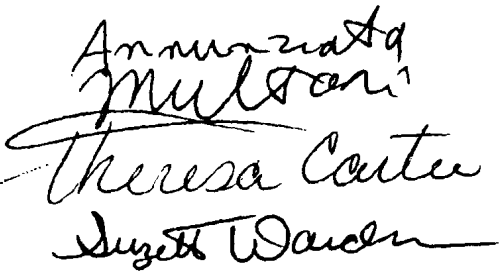 Annunziata
Multari
Theresa Carter
Suzette Warden